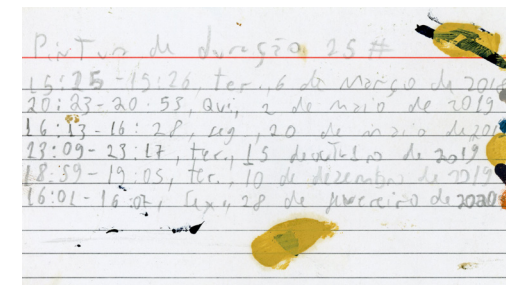 Pintura de duração 25 #
15:25 - 15:26, ter., 6 de março de 2018
20:23 - 20:53, qui, 2 de maio de 2019
16:13 - 16:28, seg, 20 de maio de 201
23:09 - 23:17, ter., 15 de outubro de 2019
18:59 - 19:05, ter., 10 de dezembro de 2019
16:01 - 16:07, sex., 28 de fevereiro de 2020